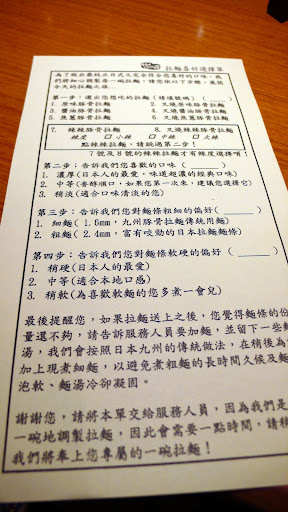 拉麵喜好選擇單
為了做出最純正日式又完全符合您喜好的口味，我
們將細心調製每一碗拉麵，請您依以下步驟，展開
今天的拉麵之旅。
第一步：選出您想吃的拉麵（請填號碼）（
1. 原味豚骨拉麵
2. 叉燒原味豚骨拉麵
3. 醬油豚骨拉麵
4. 叉燒醬油豚骨拉麵
5. 焦蔥豚骨拉麵
6. 叉燒焦蔥豚骨拉麵
7. 辣辣豚骨拉麵
8. 叉燒辣辣豚骨拉麵
辣度 □小辣 □中辣 □大辣
點辣辣拉麵，請跳過第二步！
7 號及 8 號的辣辣拉麵才有辣度選擇唷！
第二步：告訴我們您喜歡的口味（ ）
1. 濃厚(日本人的最愛，味道超濃的經典口味)
2. 中等(香醇順口，如果您第一次來，建議您選擇它)
3. 稍淡(適合口味清淡的您)
第三步：告訴我們您對麵條粗細的偏好( )
1. 細麵( 1.6mm，九州豚骨拉麵傳統用麵)
2. 粗麵( 2.4mm，富有咬勁的日本拉麵麵條)
第四步：告訴我們您對麵條軟硬的偏好（ ）
1. 稍硬(日本人的最愛)
2. 中等(適合本地口感)
3. 稍軟(為喜歡軟麵的您多煮一會兒)
最後提醒您，如果拉麵送上之後，您覺得麵條的份
量還不夠，請告訴服務人員要加麵，並留下一些麵
湯，我們會按照日本九州的傳統做法，在稍後為
加上現煮細麵，以避免煮粗麵的長時間久候及麵
泡軟、麵湯冷卻凝固。
謝謝您，請將本單交給服務人員，因為我們是
一碗地調製拉麵，因此會需要一點時間，請稍
我們將奉上您專屬的一碗拉麵！